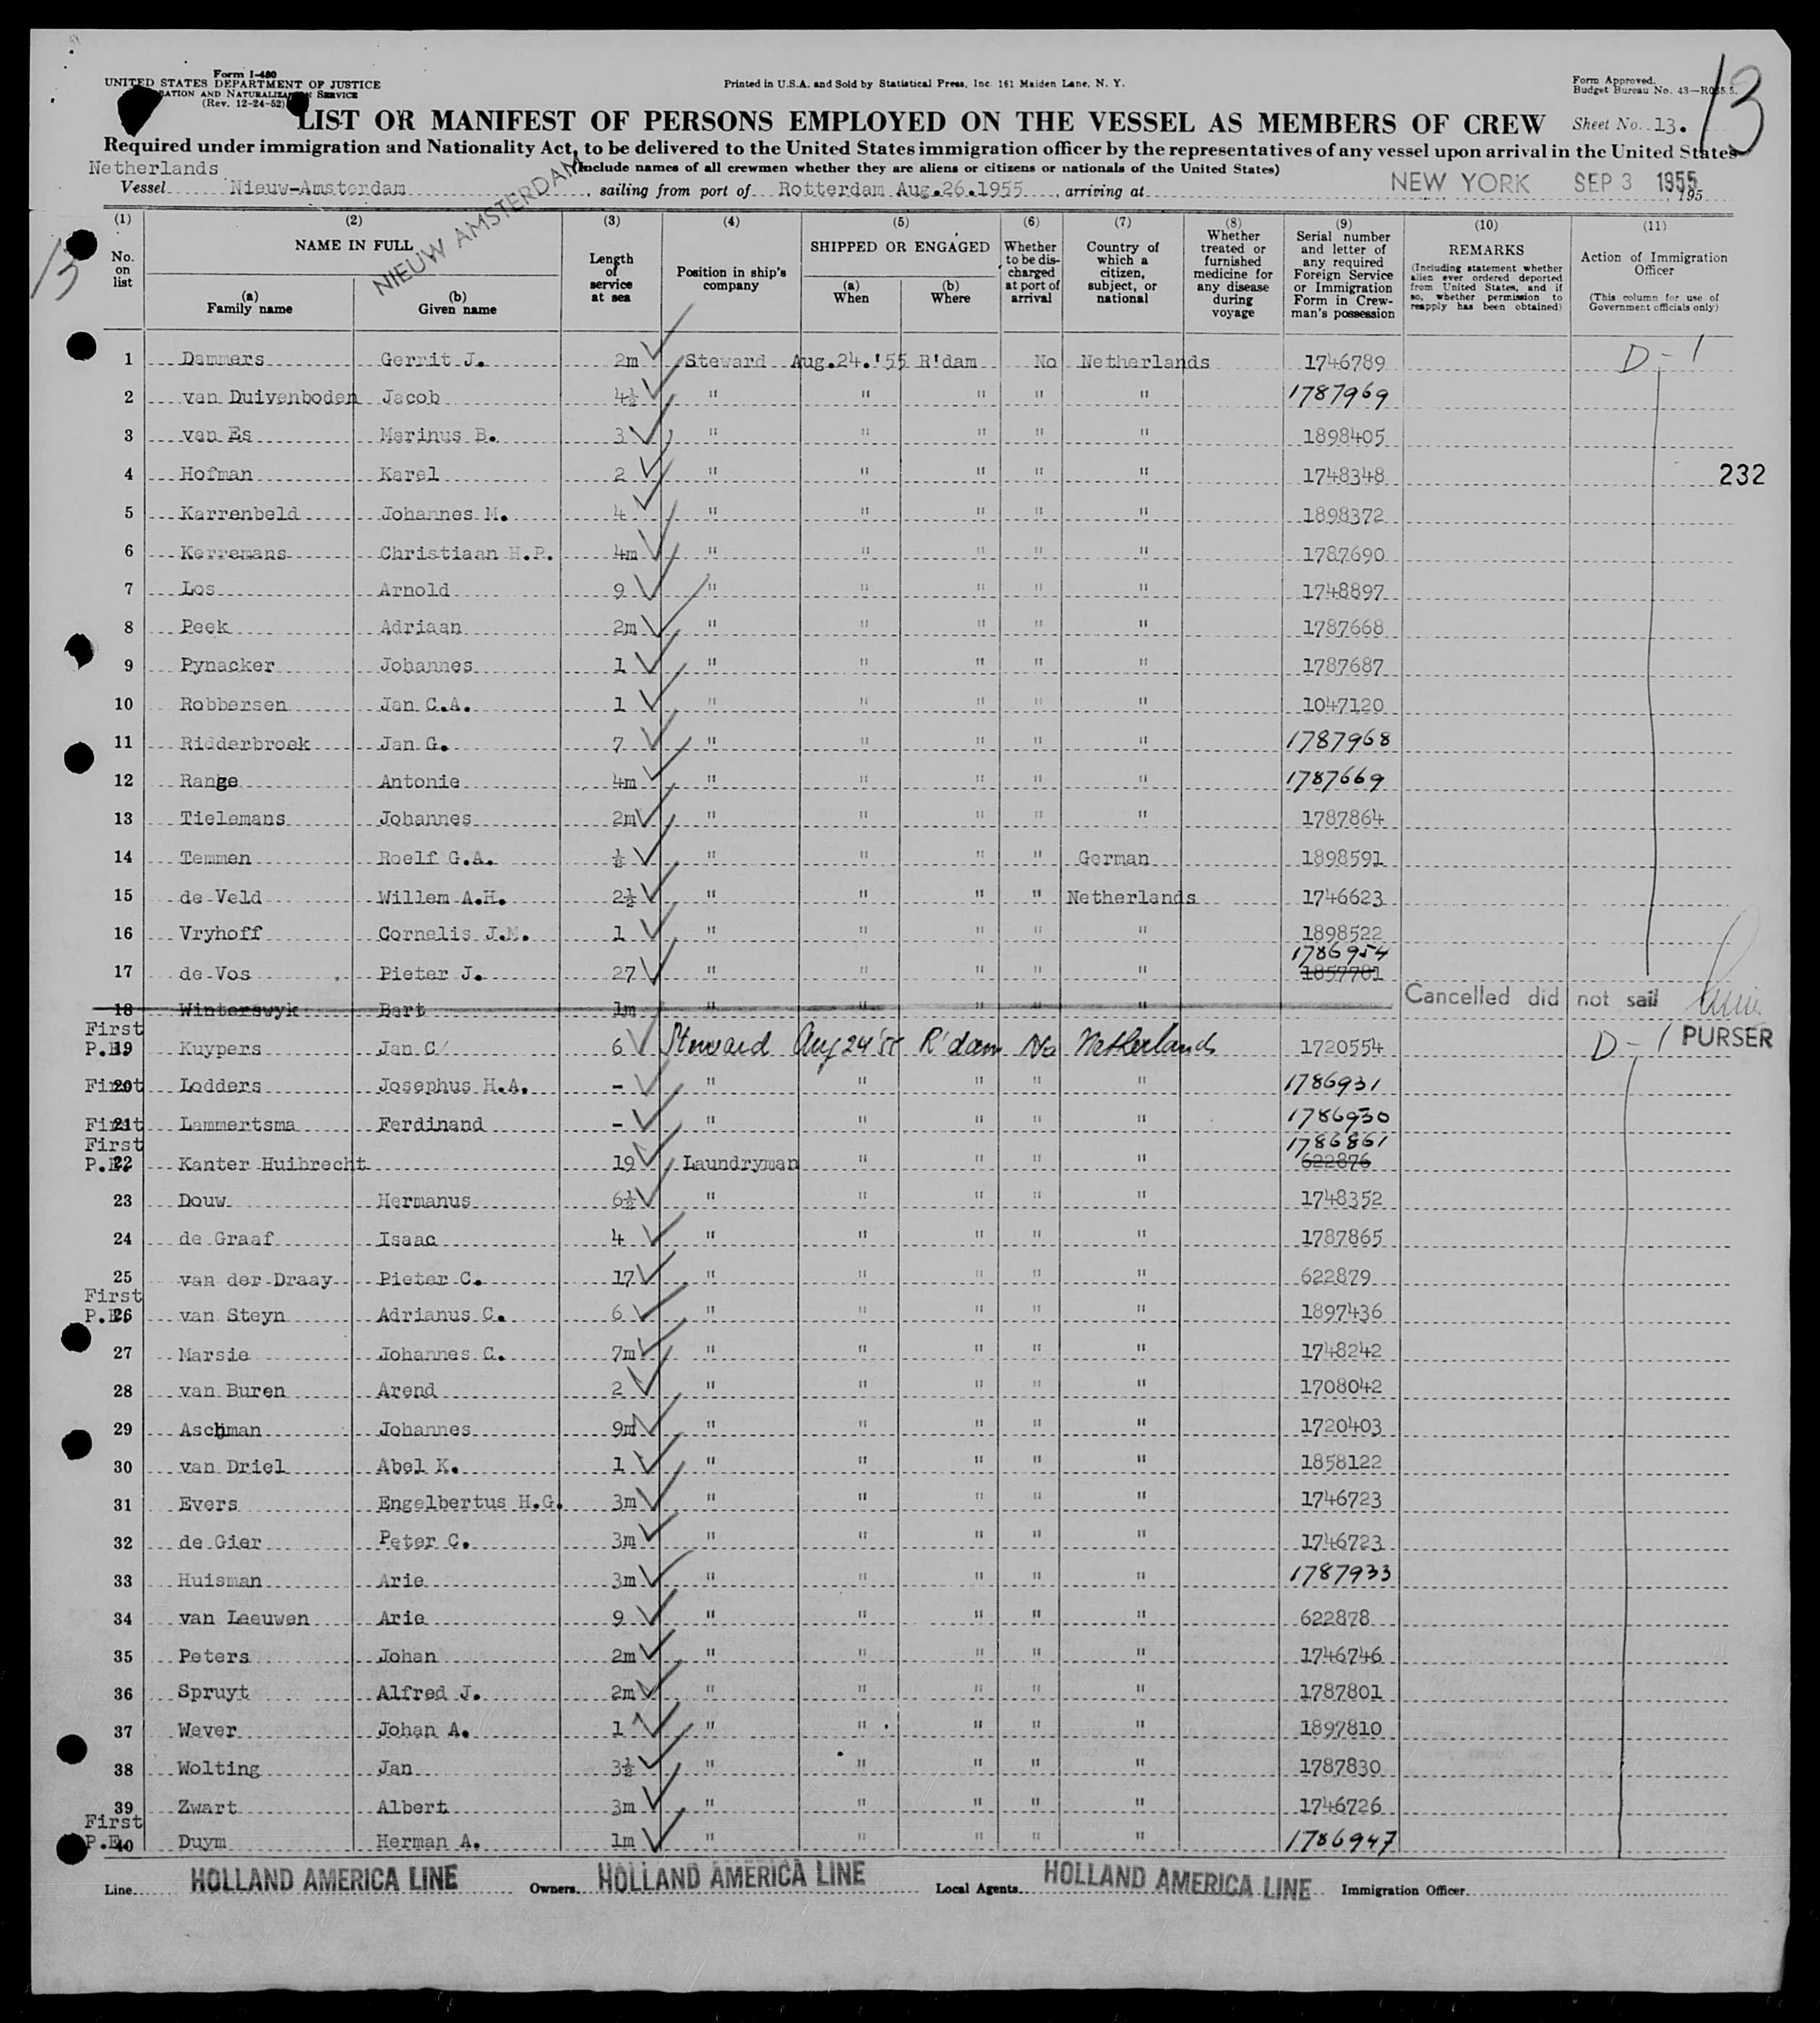 Form I-480
UNITED STATES DEPARTMENT OF JUSTICE
RATION AND NATURALIZATION SERVICE
(Rev. 12-24-52)
Printed in U.S.A. and Sold by Statistical Press, Inc. 161 Maiden Lane, N. Y.
Form Approved.
Budget Bureau No. 43—R035.5.
13
LIST OR MANIFEST OF PERSONS EMPLOYED ON THE VESSEL AS MEMBERS OF CREW Sheet No. 13.
Required under immigration and Nationality Act, to be delivered to the United States immigration officer by the representatives of any vessel upon arrival in the United States
Netherlands (Include names of all crewmen whether they are aliens or citizens or nationals of the United States)
Vessel Nieuw-Amsterdam, sailing from port of Rotterdam Aug.26.1955, arriving at NEW YORK SEP 3 1955, 195
NIEUW AMSTERDAM
13
(1) (2) (3) (4) (5) (6) (7) (8) (9) (10) (11)
No. on list
NAME IN FULL
(a) Family name
(b) Given name
Length of service at sea
Position in ship's company
SHIPPED OR ENGAGED
(a) When
(b) Where
Whether to be discharged at port of arrival
Country of which a citizen, subject, or national
Whether treated or furnished medicine for any disease during voyage
Serial number and letter of any required Foreign Service or Immigration Form in Crewman's possession
REMARKS
(Including statement whether alien ever ordered deported from United States, and if so, whether permission to reapply has been obtained)
Action of Immigration Officer
(This column for use of Government officials only)
1 Dammers Gerrit J. 2m Steward Aug.24.'55 R'dam No Netherlands 1746789 D-1
2 van Duivenboden Jacob 4½ " " " " " 1787969
3 van Es Marinus B. 3 " " " " " 1898405
4 Hofman Karel 2 " " " " " 1748348 232
5 Karrenbeld Johannes M. 4 " " " " " 1898372
6 Kerremans Christiaan H.P. 4m " " " " " 1787690
7 Los Arnold 9 " " " " " 1748897
8 Peek Adriaan 2m " " " " " 1787668
9 Pynacker Johannes 1 " " " " " 1787687
10 Robbersen Jan C.A. 1 " " " " " 1047120
11 Ridderbroek Jan G. 7 " " " " " 1787968
12 Range Antonie 4m " " " " " 1787669
13 Tielemans Johannes 2m " " " " " 1787864
14 Temmen Roelf G.A. ½ " " " " German 1898591
15 de Veld Willem A.H. 2½ " " " " Netherlands 1746623
16 Vryhoff Cornelis J.M. 1 " " " " " 1898522
1786954
17 de Vos Pieter J. 27 " " " " " 1857781
18 Winterswyk Bart 1m " " " " " Cancelled did not sail
First
P.E. 19 Kuypers Jan C 6 Steward Aug 24 '55 R'dam No Netherlands 1720554 D-1 PURSER
First 20 Lodders Josephus H.A. - " " " " " 1786931
First 21 Lammertsma Ferdinand - " " " " " 1786930
First 1786861
P.E. 22 Kanter Huibrecht 19 Laundryman " " " " 622876
23 Douw Hermanus 6½ " " " " " 1748352
24 de Graaf Isaac 4 " " " " " 1787865
25 van der Draay Pieter C. 17 " " " " " 622879
First
P.E. 26 van Steyn Adrianus C. 6 " " " " " 1897436
27 Marsie Johannes C. 7m " " " " " 1748242
28 van Buren Arend 2 " " " " " 1708042
29 Aschman Johannes 9m " " " " " 1720403
30 van Driel Abel K. 1 " " " " " 1858122
31 Evers Engelbertus H.G. 3m " " " " " 1746723
32 de Gier Peter C. 3m " " " " " 1746723
33 Huisman Arie 3m " " " " " 1787933
34 van Leeuwen Arie 9 " " " " " 622878
35 Peters Johan 2m " " " " " 1746746
36 Spruyt Alfred J. 2m " " " " " 1787801
37 Wever Johan A. 1 " " " " " 1897810
38 Wolting Jan 3½ " " " " " 1787830
39 Zwart Albert 3m " " " " " 1746726
First
P.E. 40 Duym Herman A. 1m " " " " " 1786947
Line HOLLAND AMERICA LINE Owners HOLLAND AMERICA LINE Local Agents HOLLAND AMERICA LINE Immigration Officer